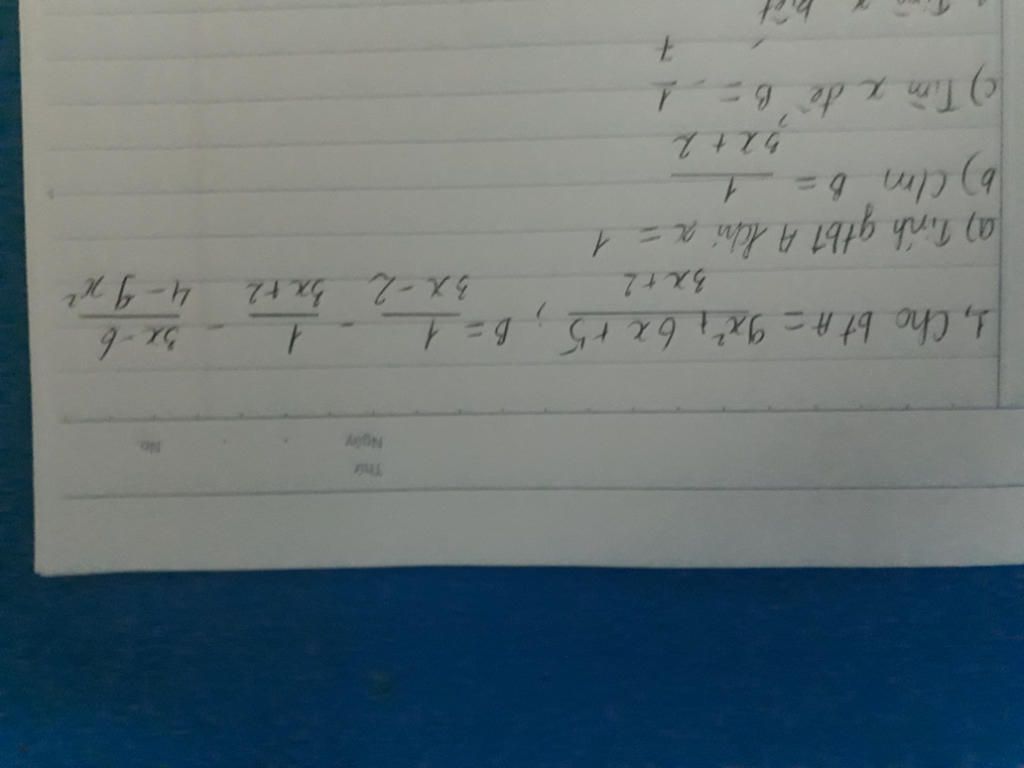 Thứ
Ngày No.
1, Cho bt A = \frac{9x² + 6x + 5}{3x + 2} ; B = \frac{1}{3x - 2} - \frac{1}{3x + 2} - \frac{3x - 6}{4 - 9x²}
a) Tính gtbt A khi x = 1
b) C/m B = \frac{1}{3x + 2}
c) Tìm x để B = \frac{1}{7}
Tìm x biết